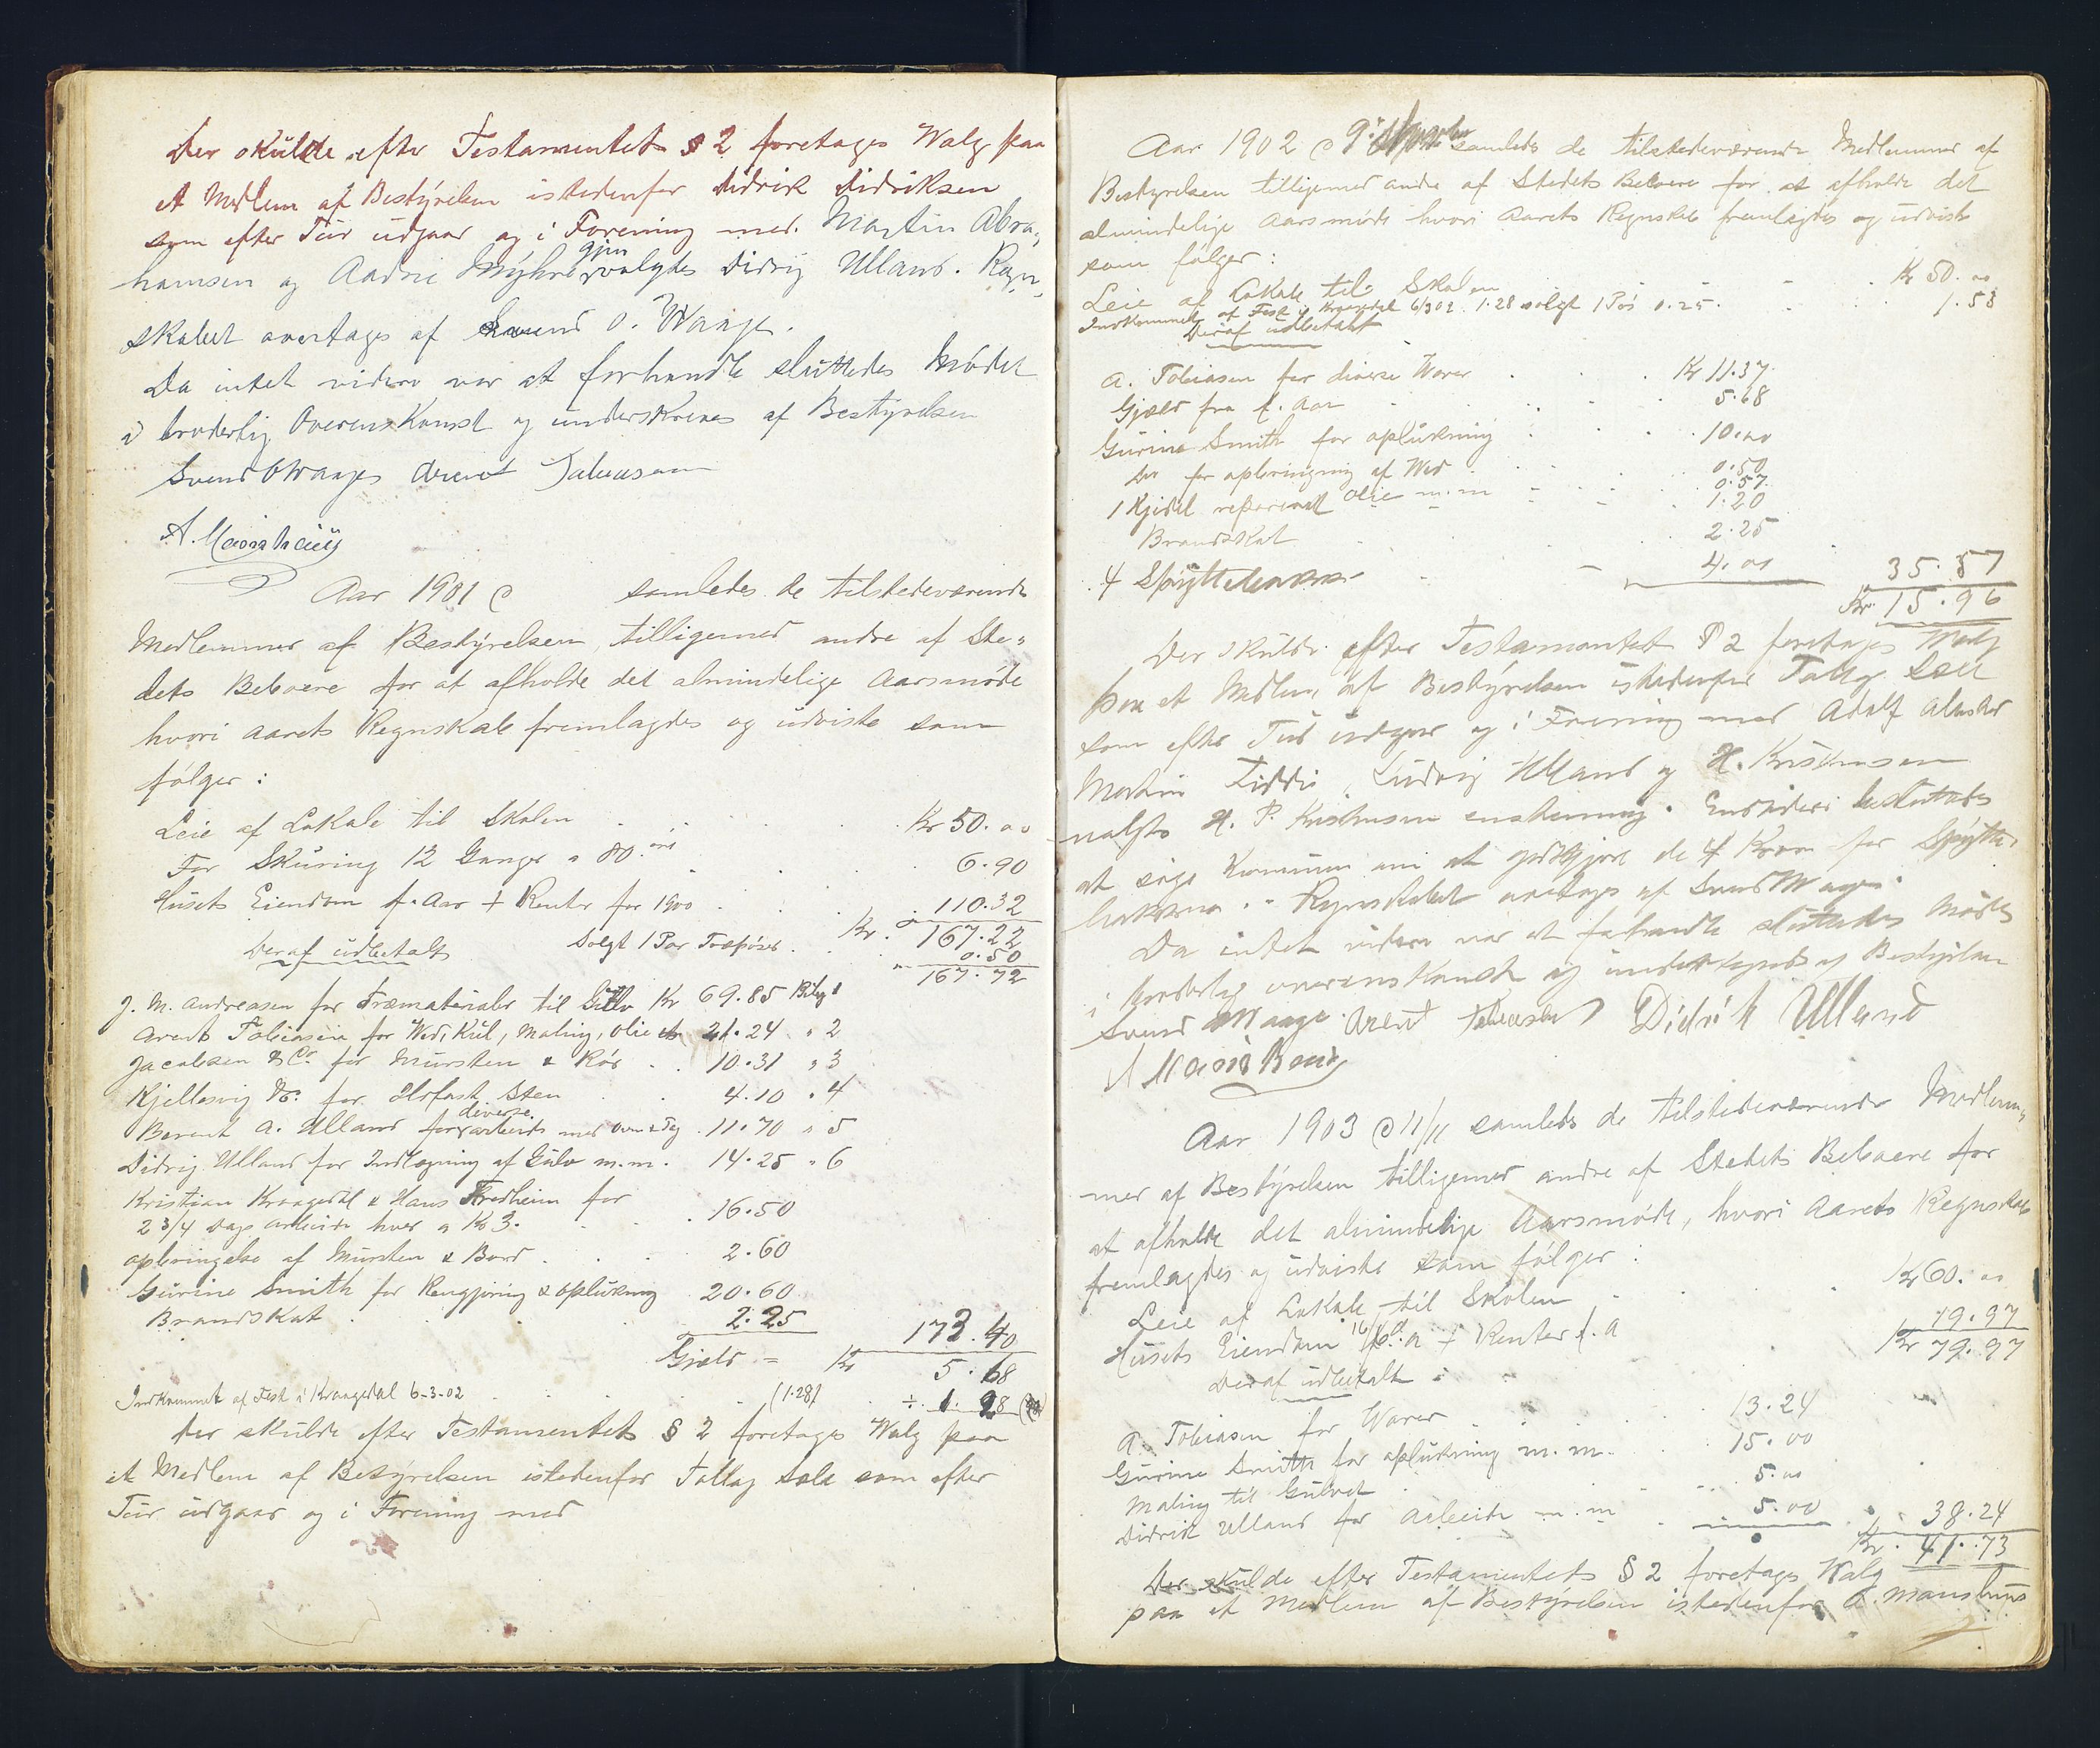 Der skulde efter Testamentets § 2 foretages Valg paa
et Medlem af Bestyrelsen istedenfor Didrik Didriksen
som efter Tur udgaar og i Forening med Martin Abra-
hamsen og Aadne Myhre gjen valgtes Didrig Ulland. Regn-
skabet overtages af Svend O. Waage.
Da intet videre var at forhandle sluttedes Mødet
i broderlig Overenskomst og underskreves af Bestyrelsen
Svend O Waage Arent Tobiassen
A. Manshaus
Aar 1901 d samledes de tilstedeværende
Medlemmer af Bestyrelsen, tilligemed andre af Ste-
dets Beboere for at afholde det almindelige Aarsmøde
hvori Aarets Regnskab fremlagdes og udviste som
følger:
Leie af Lokale til Skolen Kr 50.00
For Skuring 12 Ganger a 80 øre 6.90
Husets Eiendom f. Aar + Renter for 1900 110.32
Kr. 167.22
Deraf udbetalt Solgt 1 Par 0.50
" 167.72
J. M. Andreasen for Træmaterialer til Gulv Kr 69.85 Bilag 1
Arent Tobiasen for Ved, Kul, Maling, Olie etc 21.24 " 2
Jacobsen & Co for Mursten & Rør 10.31 " 3
Kjellesvig & Co. for Ildfast Sten 4.10 " 4
Berent A. Ulland for diverse arbeide med Ovn & Tag 11.70 " 5
Didrig Ulland for Indlægning af Gulv m.m. 14.25 " 6
Kristian Kraagedal & Hans Fredheim for
2 3/4 Dags Arbeide hver a Kr 3. 16.50
opbringelse af Mursten & Bord 2.60
Gurine Smith for Rengjøring & oplukning 20.60
Brandskat 2.25 173.40
Gjeld = Kr 5.68
Indkommet af Fest i Kraagedal 6-3-02 (1.28) ÷ 1.28
Der skulde efter Testamentets § 2 foretages Valg paa
et Medlem af Bestyrelsen istedenfor Tallag Sæle som efter
Tur udgaar og i Forening med
Aar 1902 d 9de samledes de tilstedeværende Medlemmer af
Bestyrelsen tilligemed andre af Stedets Beboere for at afholde det
almindelige Aarsmøde hvori Aarets Regnskab fremlagdes og udviste
som følger:
Leie af Lokale til Skolen Kr 50.00
Indkommet af Fest i Kraagedal 6/3 02 1.28 solgt 1 0.25 1.53
Deraf udbetalt
A. Tobiasen for diverse Varer Kr 11.37
Gjæld fra f. Aar 5.68
Gurine Smith for oplukning 10.00
Do for opbringning af Ved 0.50
0.57
1 Kjedel reparerat Olie m.m 1.20
Brandskat 2.25
4 Spyttebakker 4.00 35.57
Kr. 15.96
Der skulde efter Testamentet § 2 foretages Valg
paa et Medlem af Bestyrelsen istedenfor Tallag Sæle
som efter Tur udgaar og i Forening med Adolf
Martin Ludvig Ulland og H. Kristensen
valgtes H. P. Kristensen enstemmig. Endvidere besluttedes
at søge Kommunen om at godtgjøre de 4 Kroner for Spytte-
bakkerne. - Regnskabet overtages af Svend Waage.
Da intet videre var at forhandle sluttedes Mødet
i broderlig overenskomst og af Bestyrelsen
Svend O Waage. Arent Tobiassen Didrik Ulland
A Manshaus
Aar 1903 d 11/11 samledes de tilstedeværende Medlem-
mer af Bestyrelsen tilligemed andre af Stedets Beboere for
at afholde det almindelige Aarsmøde, hvori Aarets Regnskab
fremlagdes og udviste som følger:
Leie af Lokale til Skolen Kr 60.00
Husets Eiendom + Renter f. A 19.97
Kr 79.97
Deraf udbetalt:
A. Tobiasen for Varer 13.24
Gurine Smith for oplukning m.m. 15.00
Maling til Gulvet 5.00
Didrik Ulland for Arbeide m.m 5.00 38.24
Kr. 41.73
Der skulde efter Testamentets § 2 foretages Valg
paa et Medlem af Bestyrelsen istedenfor A. Manshaus